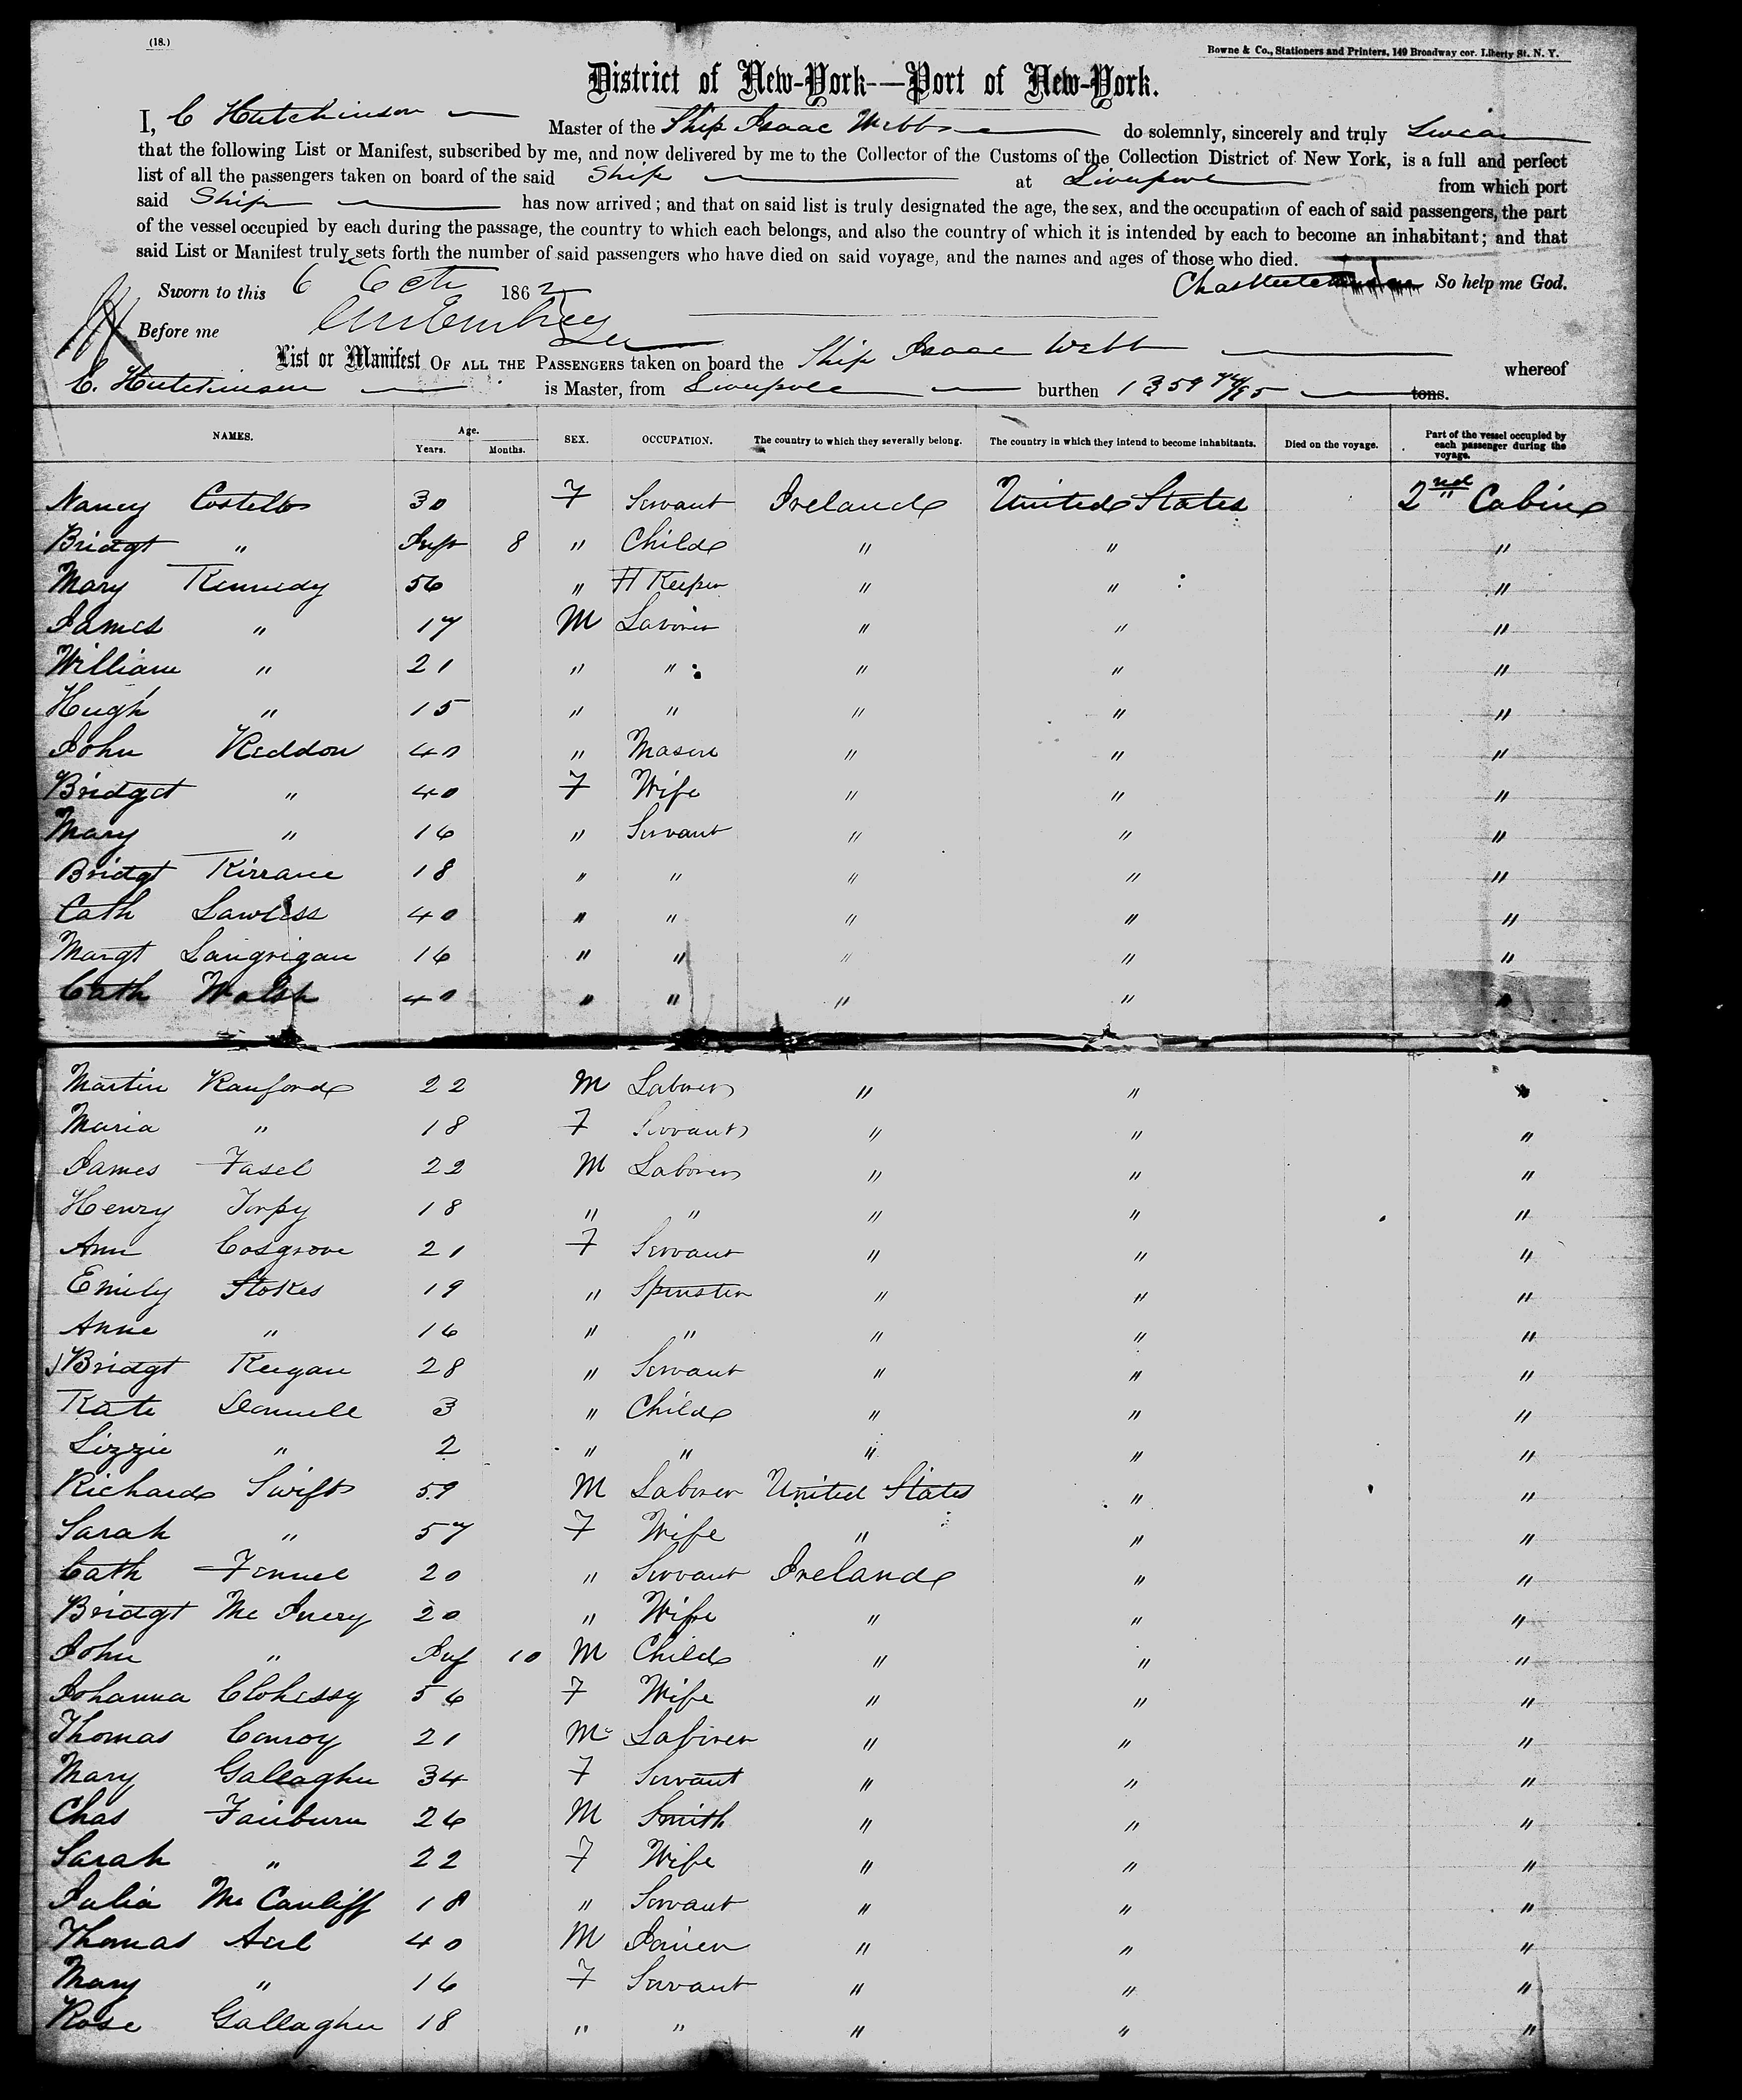 (18.)
Bowne & Co., Stationers and Printers, 149 Broadway cor. Liberty St. N. Y.
District of New-York—Port of New-York.
I, C Hutchinson Master of the Ship Isaac Webb do solemnly, sincerely and truly Swear
that the following List or Manifest, subscribed by me, and now delivered by me to the Collector of the Customs of the Collection District of New York, is a full and perfect
list of all the passengers taken on board of the said Ship at Liverpool from which port
said Ship has now arrived; and that on said list is truly designated the age, the sex, and the occupation of each of said passengers, the part
of the vessel occupied by each during the passage, the country to which each belongs, and also the country of which it is intended by each to become an inhabitant; and that
said List or Manifest truly sets forth the number of said passengers who have died on said voyage, and the names and ages of those who died.
Sworn to this 6 Octr 1862 Chas Hutchinson So help me God.
Before me
List or Manifest OF ALL THE PASSENGERS taken on board the Ship Isaac Webb whereof
C. Hutchinson is Master, from Liverpool burthen 1359 74/95 tons.
NAMES. Age. Years. Months. SEX. OCCUPATION. The country to which they severally belong. The country in which they intend to become inhabitants. Died on the voyage. Part of the vessel occupied by each passenger during the voyage.
Nancy Costello 30 F Servant Ireland United States 2nd Cabin
Bridgt " Inft 8 " Child " " "
Mary Kennedy 56 " H Keeper " " "
James " 17 M Laborer " " "
William " 21 " " " " "
Hugh " 15 " " " " "
John Reddon 40 " Mason " " "
Bridget " 40 F Wife " " "
Mary " 16 " Servant " " "
Bridgt Kirrane 18 " " " " "
Cath Lawless 40 " " " " "
Margt Langrigan 16 " " " " "
Cath Walsh 40 " " " " "
Martin Ranford 22 M Laborer " " "
Maria " 18 F Servant " " "
James Fasel 22 M Laborer " " "
Henry Torpy 18 " " " " "
Ann Cosgrove 21 F Servant " " "
Emily Stokes 19 " Spinster " " "
Anne " 16 " " " " "
Bridgt Keegan 28 " Servant " " "
Kate 3 " Child " " "
Lizzie " 2 " " " " "
Richard Swift 59 M Laborer United States " "
Sarah " 57 F Wife " " "
Cath Fennel 20 " Servant Ireland " "
Bridgt Mc Inery 20 " Wife " " "
John " Inf 10 M Child " " "
Johanna Clohessy 56 F Wife " " "
Thomas Conroy 21 M Laborer " " "
Mary Gallagher 34 F Servant " " "
Chas Fairburn 26 M Smith " " "
Sarah " 22 F Wife " " "
Julia Mc Cauliff 18 " Servant " " "
Thomas 40 M Joiner " " "
Mary " 16 F Servant " " "
Rose Gallagher 18 " " " " "